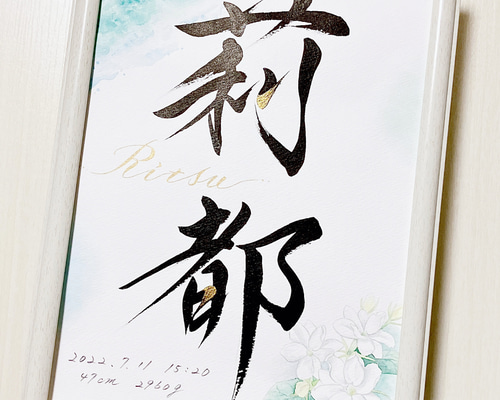 莉
Ritsu
都
2022.7.11 15:20
49cm 2960g